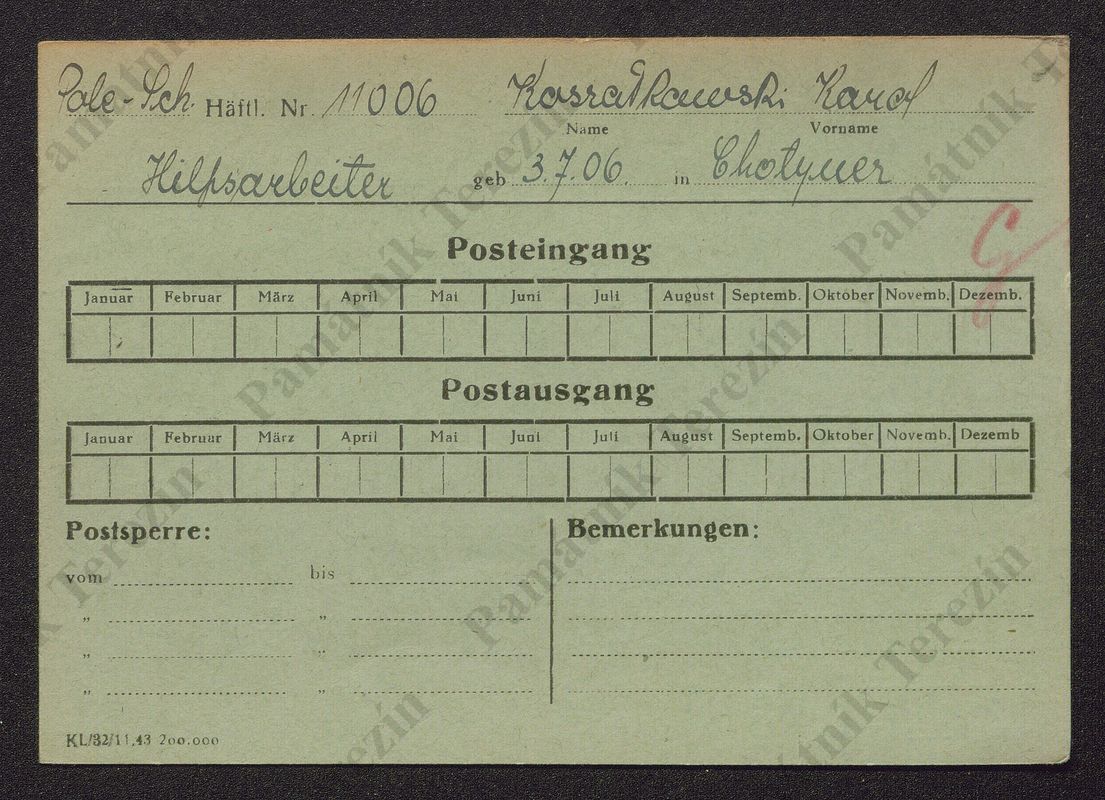 Pole-Sch. Häftl. Nr. 11006 Kossatkowski Karol
Name Vorname
Hilfsarbeiter geb 3.7.06. in Chotyner
Posteingang
Januar Februar März April Mai Juni Juli August Septemb. Oktober Novemb. Dezemb.
Postausgang
Januar Februar März April Mai Juni Juli August Septemb. Oktober Novemb. Dezemb
Postsperre: Bemerkungen:
vom bis
„ „
„ „
„ „
KL/32/11.43 200.000
Památník Terezín